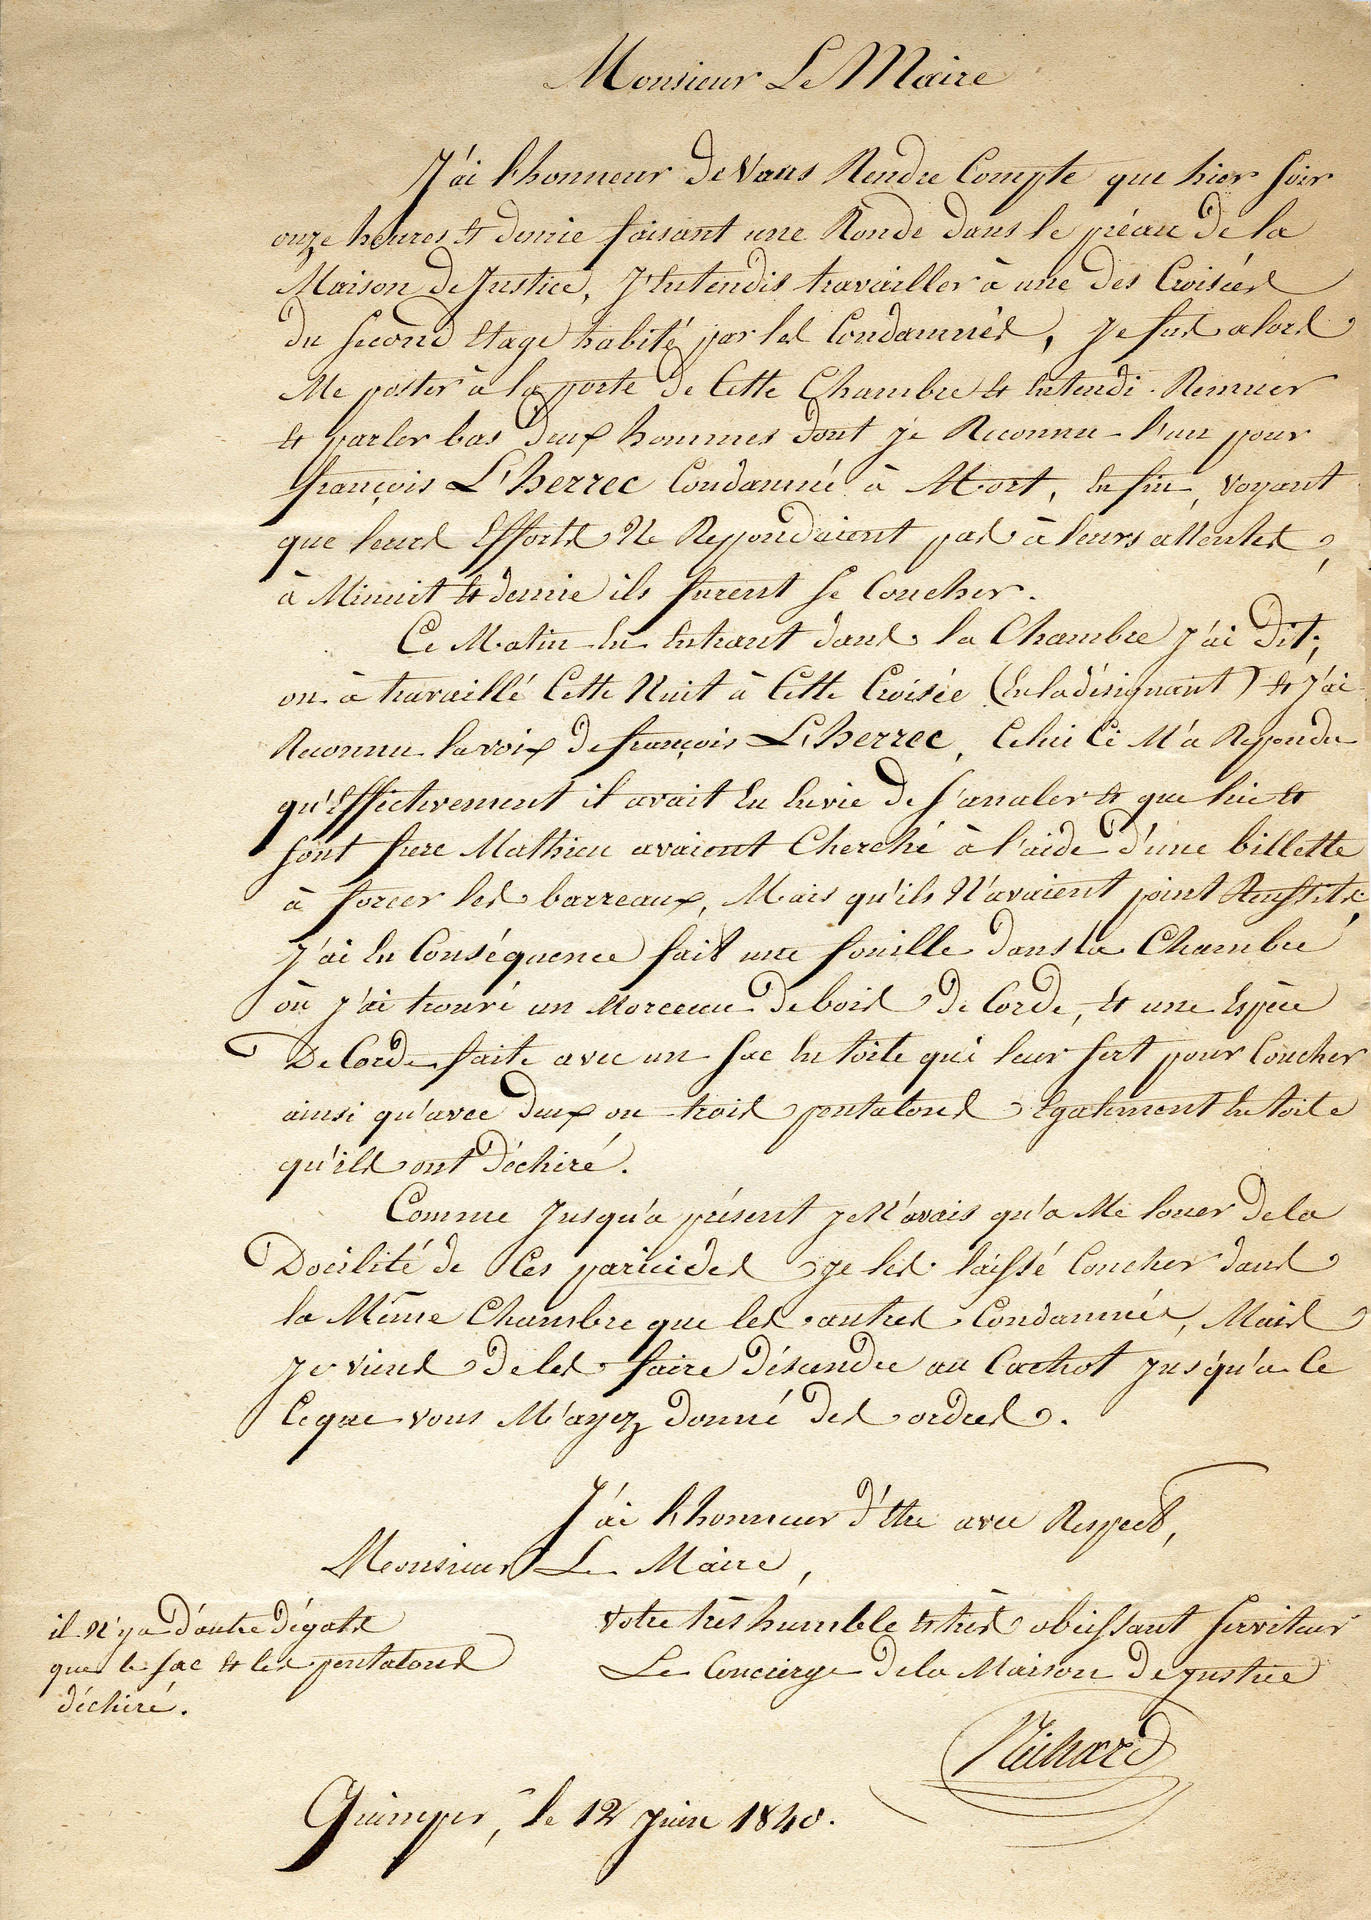 Monsieur Le Maire
J'ai l'honneur de Vous Rendre Compte que hier soir
onze heures et demie faisant une Ronde dans le préau de la
Maison de Justice, J'Entendis travailler à une des Croisées
du second Etage habité par les Condamnés, je fus alors
Me poster à la porte de Cette Chambre et Entendi Remuer
et parler bas deux hommes dont je Reconnu l'un pour
françois L'herrec Condamné à Mort, Enfin, voyant
que leurs Efforts Ne Repondaient pas à leurs attentes,
à Minuit et demie ils furent se Coucher.
Ce Matin En Entrant dans la Chambre j'ai dit;
on à travaillé Cette Nuit à Cette Croisée (En la désignant) et j'ai
Reconnu la voix de françois L'herrec, Celui Ci M'a Repondu
qu'Effectivement il avait Eu Envie de s'en aler et que lui et
sont frere Mathieu avaient Cherché à l'aide d'une billette
à forcer les barreaux, Mais qu'ils N'avaient point Reussite;
J'ai En Conséquence fait une fouille dans la Chambre
ou j'ai trouvé un Morceau de bois de Corde, et une Espèce
De Corde faite avec un sac En toile qui leur sert pour Coucher
ainsi qu'avec deux ou trois pentalons Egalement En toile
qu'ils ont déchiré.
Comme jusqu'a présent je N'avais qu'a Me louer de la
Docilité de Ces paricides je les laissé Coucher dans
la Même Chambre que les autres Condamnés, Mais
je viens de les faire désendre au Cachot jusqu'a Ce
Ce que vous M'ayez donné des ordres.
J'ai l'honneur d'Etre avec Respect,
Monsieur Le Maire,
votre très humble et très obeissant serviteur
Le Concierge de la Maison de justice
il N'y a d'autre dégats
que le sac et les pentalons
déchiré.
Quimper, le 12 juin 1840.